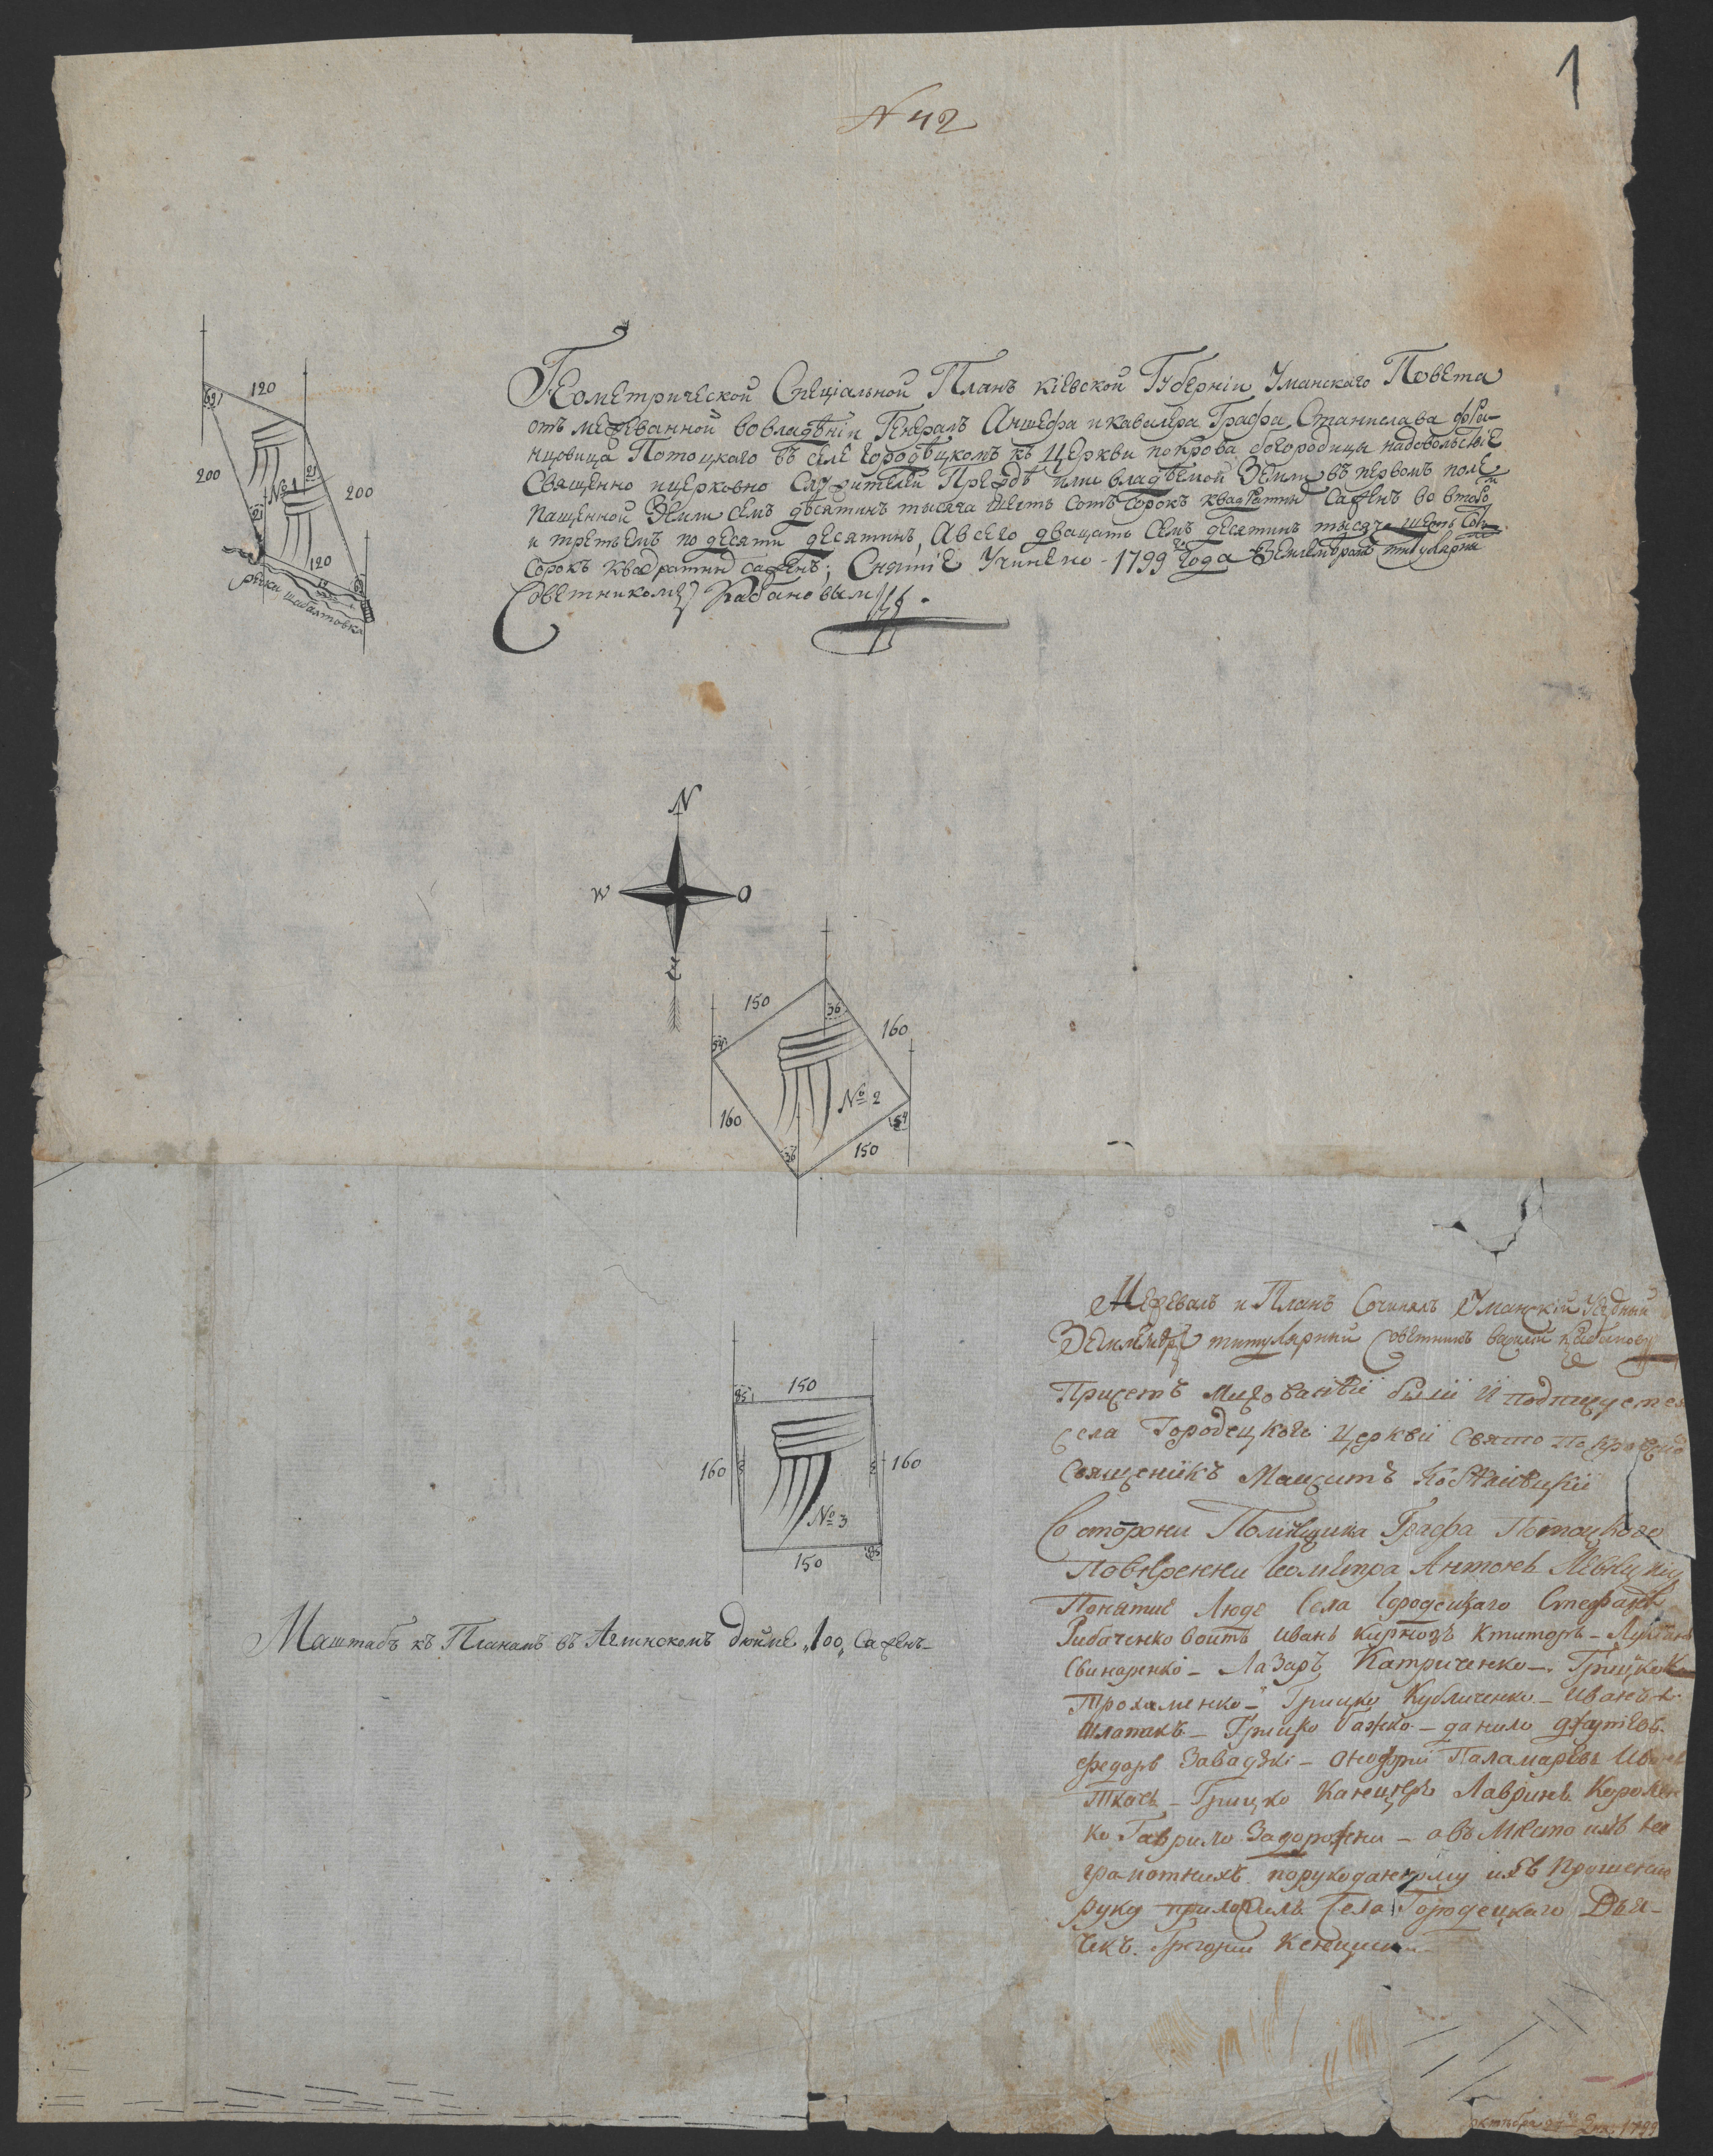 1
N 42
Геометрической Специальной Планъ кіевской Губерніи Уманскаго Повета
отъ межеванной вовладѣніи Генералъ Аншефа икавалера Графа Станислава фра-
нцовица Потоцкаго въ селе городѣцкомъ къ церкви покрова богородицы надовольствіе
Священно ицерковно Служителей Прежде ими владѣемой Земли въ первомъ поле
пашенной Земли семъ десятинъ тысяча шесть сотъ сорокъ квадратны саженъ во второ
и третьемъ по десяти десятинъ, А всего двацать семъ десятинъ тысяча шесть сот
сорокъ квадратны саженъ; Снятіе Учинено 1799 года Землемѣромъ титулярны
Советникомъ Кабановымъ
120
69
200
№ 1
21
200
21
120
69
речки шабалтовка
N
W
O
S
150
36
160
54
№ 2
54
160
36
150
150
85
160
3
3
160
№ 3
150
85
Маштабъ къ Планамъ въ Аглинскомъ дюйме „100„ Саженъ
Межевалъ и Планъ Сочинялъ Уманский Уездный
Землемѣръ титулярный Советникъ Кабановъ
При семъ межованіи былъ и подпи
села Городецкого Церкви Свято Покровско
Священикъ
Со стороны Помѣщика Графа Потоцкого
Повѣренни Геометра Антонъ Левицкій
Понятие Люде Села Городецкаго Стефанъ
Рибаченко воитъ Иванъ ктиторъ
Свинаренко – Лазаръ Катриченко – Грицко
Трохименко – Грицко Кубличенко – Иванъ
Шлапакъ – Грицко Бажко – данило
федоръ Завадзкі – Онофри Паламаръ Иванъ
Ткачъ – Грицко Лавринъ
ко Гаврило Задорожни – авъ Место ихъ не
грамотнихъ порукоданному ихъ Прошению
руку приложилъ Села Городецкаго Дья-
чекъ Григорий
октября 1799